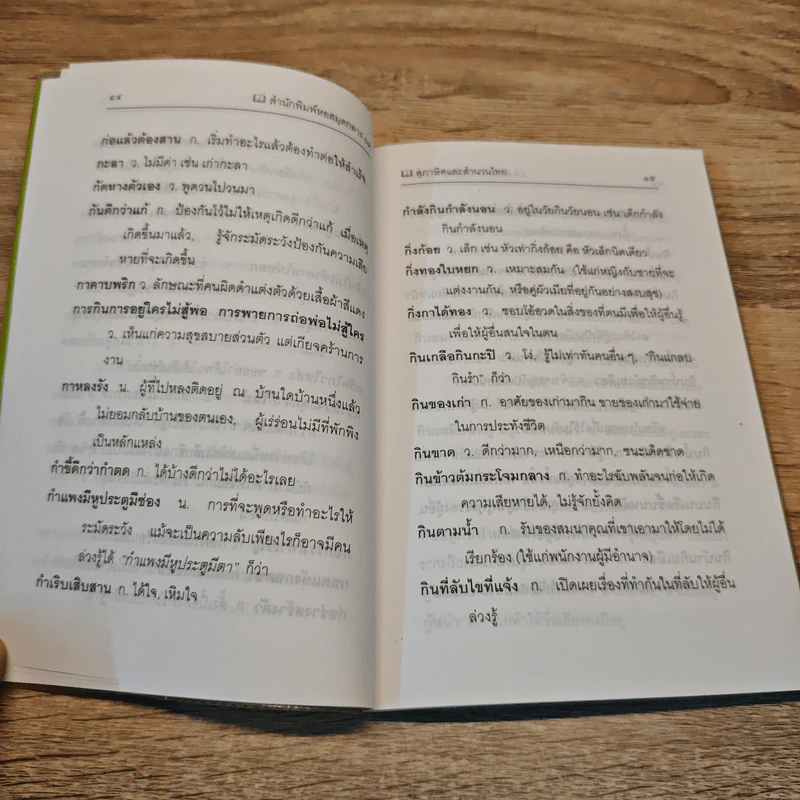 ๑๔
สำนักพิมพ์หอสมุดกลาง ๐๙
ก่อแล้วต้องสาน ก. เริ่มทำอะไรแล้วต้องทำต่อให้สำเร็จ
กะลา ว. ไม่มีค่า เช่น เก่ากะลา
กัดหางตัวเอง ว. พูดวนไปวนมา
กันดีกว่าแก้ ก. ป้องกันไว้ไม่ให้เหตุเกิดดีกว่าแก้ เมื่อเหตุ
เกิดขึ้นมาแล้ว, รู้จักระมัดระวังป้องกันความเสีย
หายที่จะเกิดขึ้น
กาคาบพริก ว. ลักษณะที่คนผิดดำแต่งตัวด้วยเสื้อผ้าสีแดง
การกินการอยู่ใครไม่สู้พ่อ การพายการถ่อพ่อไม่สู้ใคร
ว. เห็นแก่ความสุขสบายส่วนตัว แต่เกียจคร้านการ
งาน
กาหลงรัง น. ผู้ที่ไปหลงติดอยู่ ณ บ้านใดบ้านหนึ่งแล้ว
ไม่ยอมกลับบ้านของตนเอง, ผู้เร่ร่อนไม่มีที่พักพิง
เป็นหลักแหล่ง
กำขี้ดีกว่ากำตด ก. ได้บ้างดีกว่าไม่ได้อะไรเลย
กำแพงมีหูประตูมีช่อง น. การที่จะพูดหรือทำอะไรให้
ระมัดระวัง แม้จะเป็นความลับเพียงไรก็อาจมีคน
ล่วงรู้ได้ "กำแพงมีหูประตูมีตา" ก็ว่า
กำเริบเสิบสาน ก. ได้ใจ, เหิมใจ
สุภาษิตและสำนวนไทย
๑๕
กำลังกินกำลังนอน ว. อยู่ในวัยกินวัยนอน เช่น เด็กกำลัง
กินกำลังนอน
กิ่งก้อย ว. เล็ก เช่น หัวเท่ากิ่งก้อย คือ หัวเล็กนิดเดียว
กิ่งทองใบหยก ว. เหมาะสมกัน (ใช้แก่หญิงกับชายที่จะ
แต่งงานกัน, หรือคู่ผัวเมียที่อยู่กันอย่างสงบสุข)
กิ้งกาได้ทอง ว. ชอบโอ้อวดในสิ่งของที่ตนมีเพื่อให้ผู้อื่นรู้
เพื่อให้ผู้อื่นสนใจในตน
กินเกลือกินกะปิ ว. โง่, รู้ไม่เท่าทันคนอื่น ๆ, "กินแกลบ
กินรำ" ก็ว่า
กินของเก่า ก. อาศัยของเก่ามากิน ขายของเก่ามาใช้จ่าย
ในการประทังชีวิต
กินขาด ว. ดีกว่ามาก, เหนือกว่ามาก, ชนะเด็ดขาด
กินข้าวต้มกระโจมกลาง ก. ทำอะไรฉับพลันจนก่อให้เกิด
ความเสียหายได้, ไม่รู้จักยั้งคิด
กินตามน้ำ ก. รับของสมนาคุณที่เขาเอามาให้โดยไม่ได้
เรียกร้อง (ใช้แก่พนักงานผู้มีอำนาจ)
กินที่ลับไขที่แจ้ง ก. เปิดเผยเรื่องที่ทำกันในที่ลับให้ผู้อื่น
ล่วงรู้